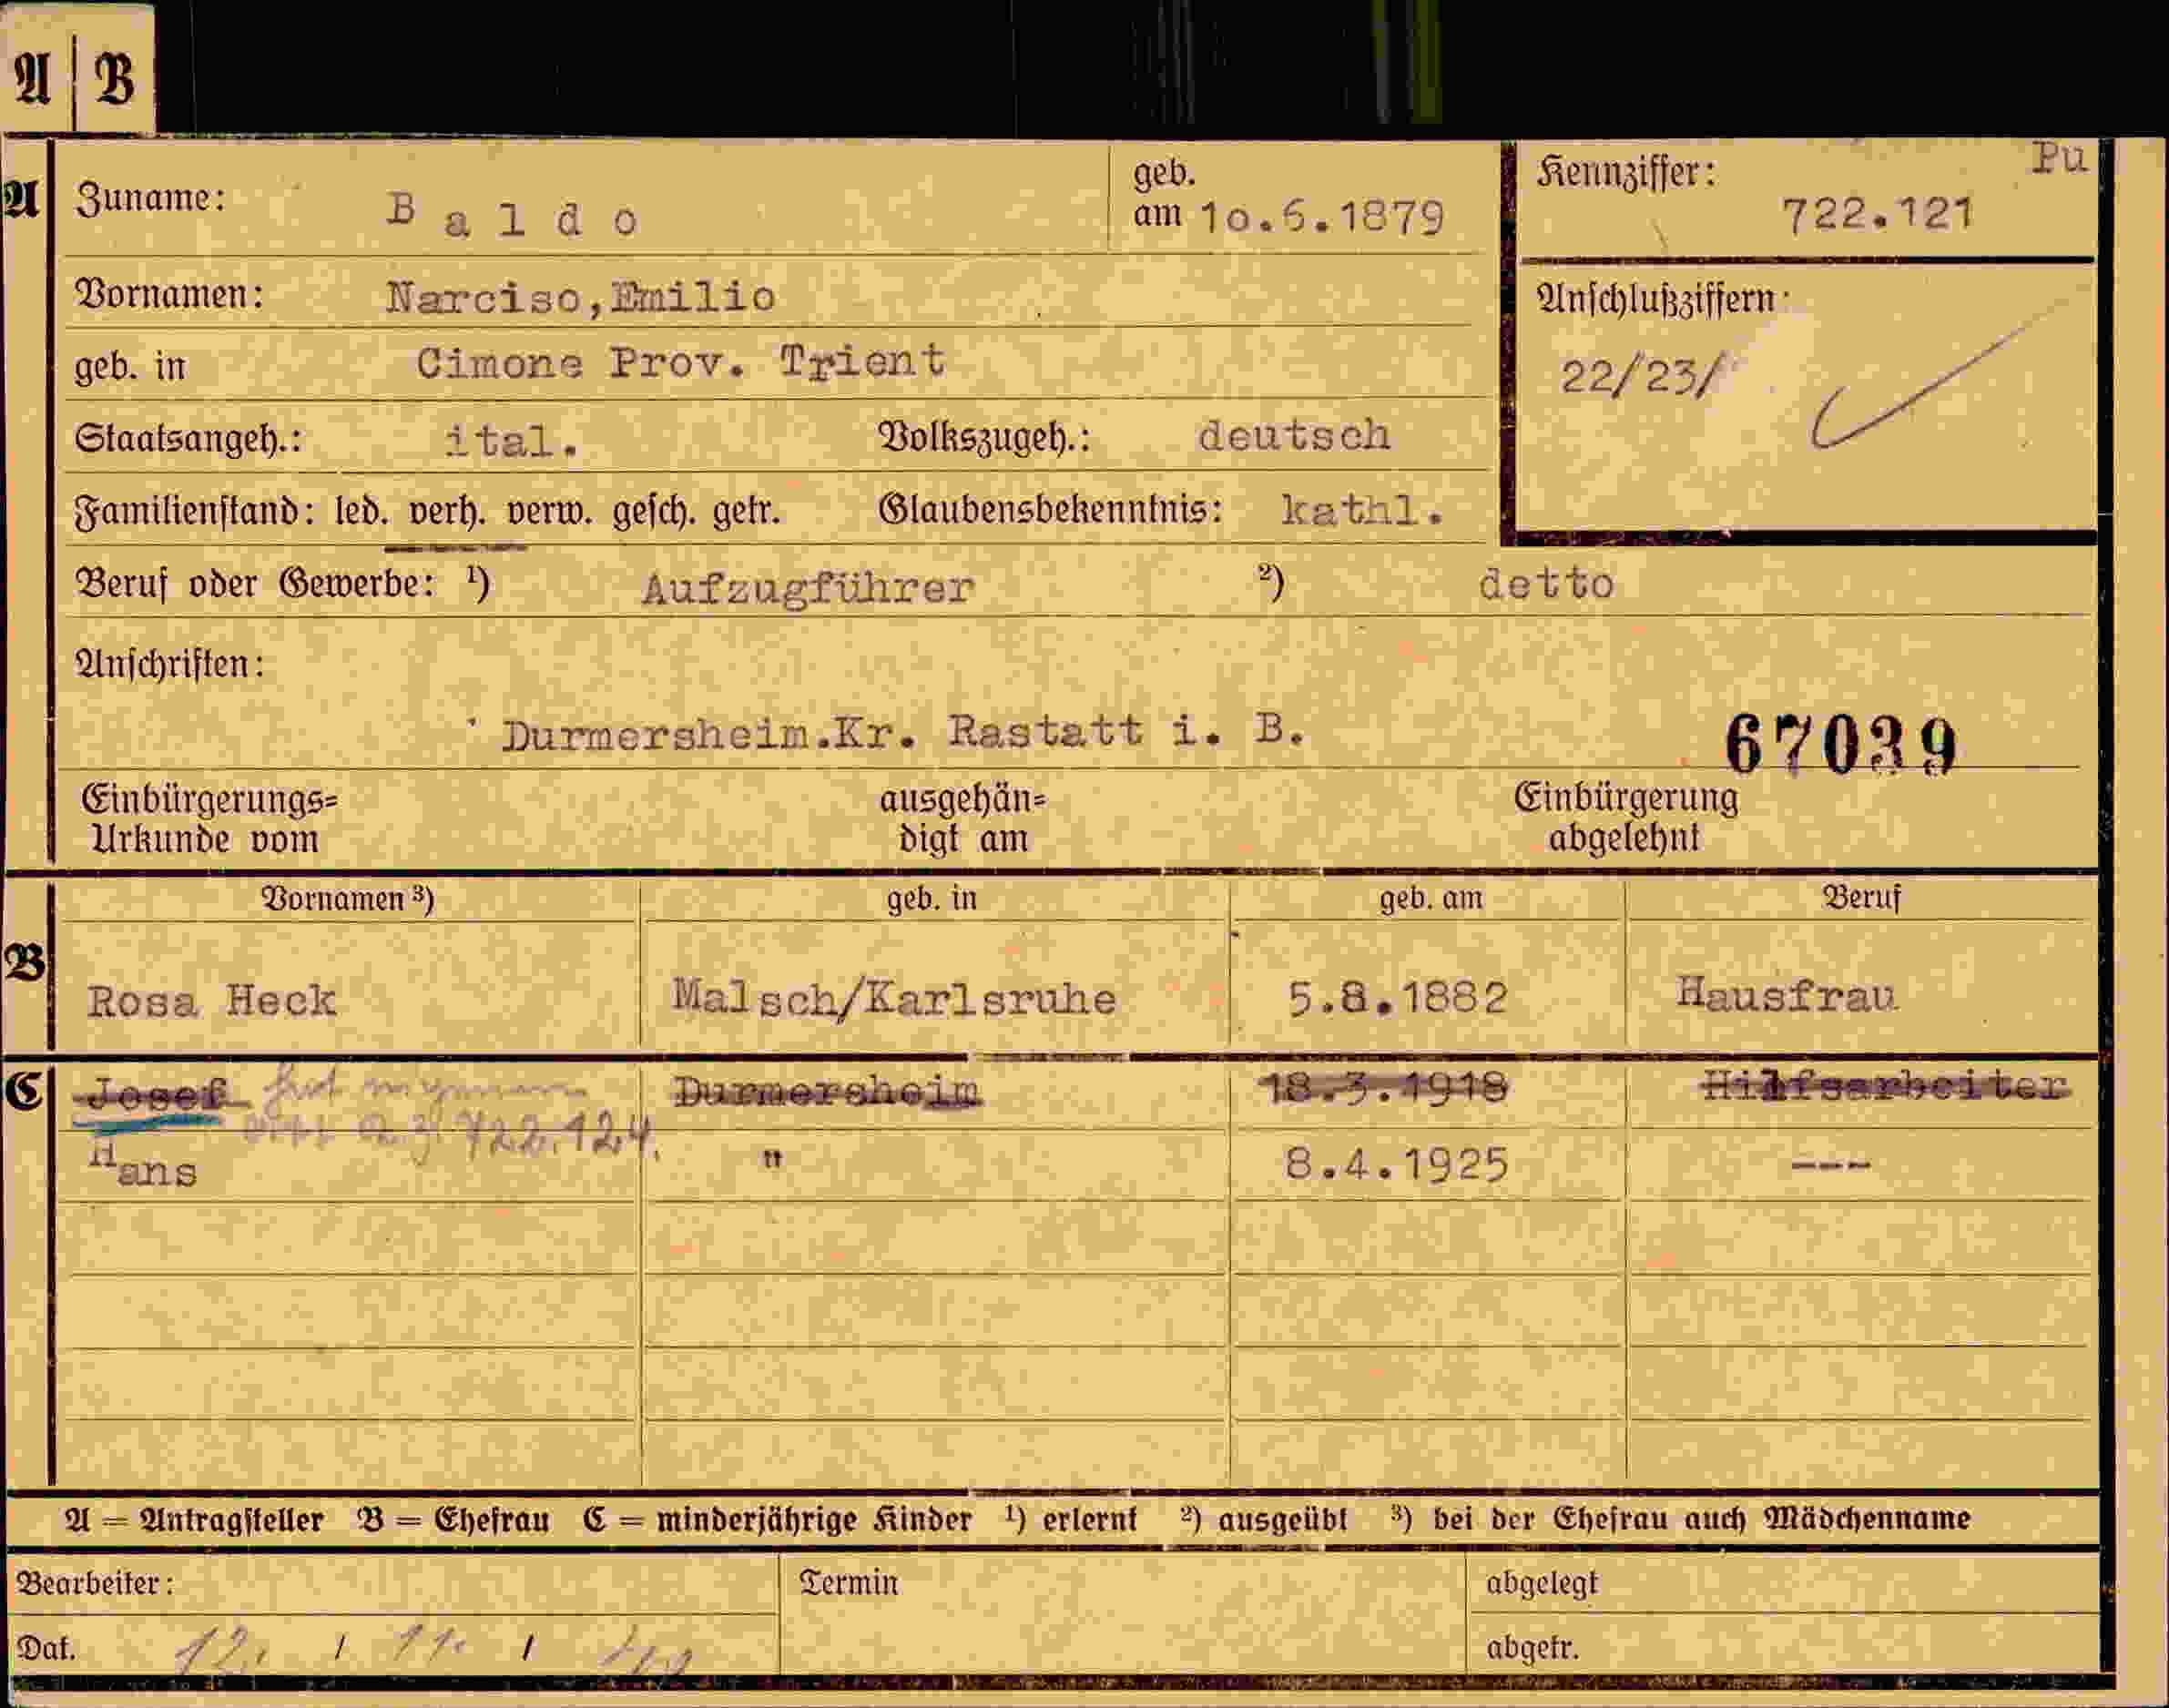 A | B
A Zuname: Baldo geb. am 10.6.1879 Kennziffer: Pu 722.121
Vornamen: Narciso,Emilio Anschlußziffern:
geb. in Cimone Prov. Trient 22/23/
Staatsangeh.: ital. Volkszugeh.: deutsch
Familienstand: led. verh. verw. gesch. getr. Glaubensbekenntnis: kathl.
Beruf oder Gewerbe: ¹) Aufzugführer ²) detto
Anschriften:
Durmersheim.Kr. Rastatt i. B. 67039
Einbürgerungs= ausgehän= Einbürgerung
Urkunde vom digt am abgelehnt
Vornamen ³) geb. in geb. am Beruf
B Rosa Heck Malsch/Karlsruhe 5.8.1882 Hausfrau
C Josef Durmersheim 18.3.1918 Hilfsarbeiter
722.124.
Hans " 8.4.1925 ---
A = Antragsteller B = Ehefrau C = minderjährige Kinder ¹) erlernt ²) ausgeübt ³) bei der Ehefrau auch Mädchenname
Bearbeiter: Termin abgelegt
Dat. 12. / 11. / 40 abgetr.